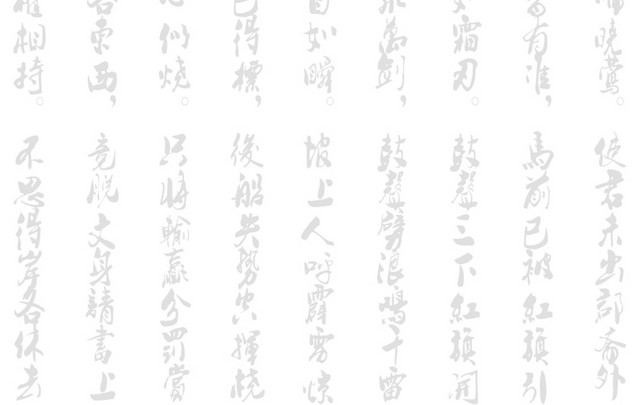 曉鶯。
有准，
霜刃。
萬劍，
如瞬。
得標，
似燒。
東西，
相持。
使君未出郡斋外
馬前已被紅旗引
鼓聲三下紅旗開
鼓聲劈浪鳴千雷
坡上人呼霹雳惊
後船失勢空揮橈
只將輸贏分罰賞
竟脫文身請書上
不思得岸各休去